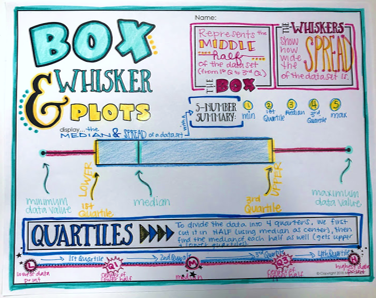 Name:
BOX
& WHISKER
PLOTS
display... the
MEDIAN & SPREAD of a data set
Represents the
MIDDLE
half
of the data set
(from 1st Q to 3rd Q)
THE BOX
THE WHISKERS
Show
how
wide
the
SPREAD
of the data set is.
5-NUMBER
SUMMARY:
1 min
2 1st Quartile
3 Median
4 3rd Quartile
5 max
minimum
data value
LOWER
1st
Quartile
median
UPPER
3rd
Quartile
maximum
data value
QUARTILES
To divide the data into 4 quarters, we first
cut it in HALF (using median as center), then
find the median of each half as well (gets upper
& lower quartiles)
L
1st Quarter
Q1
2nd
M
Q3
4th Quarter
H
lowest data
point
highest data
point